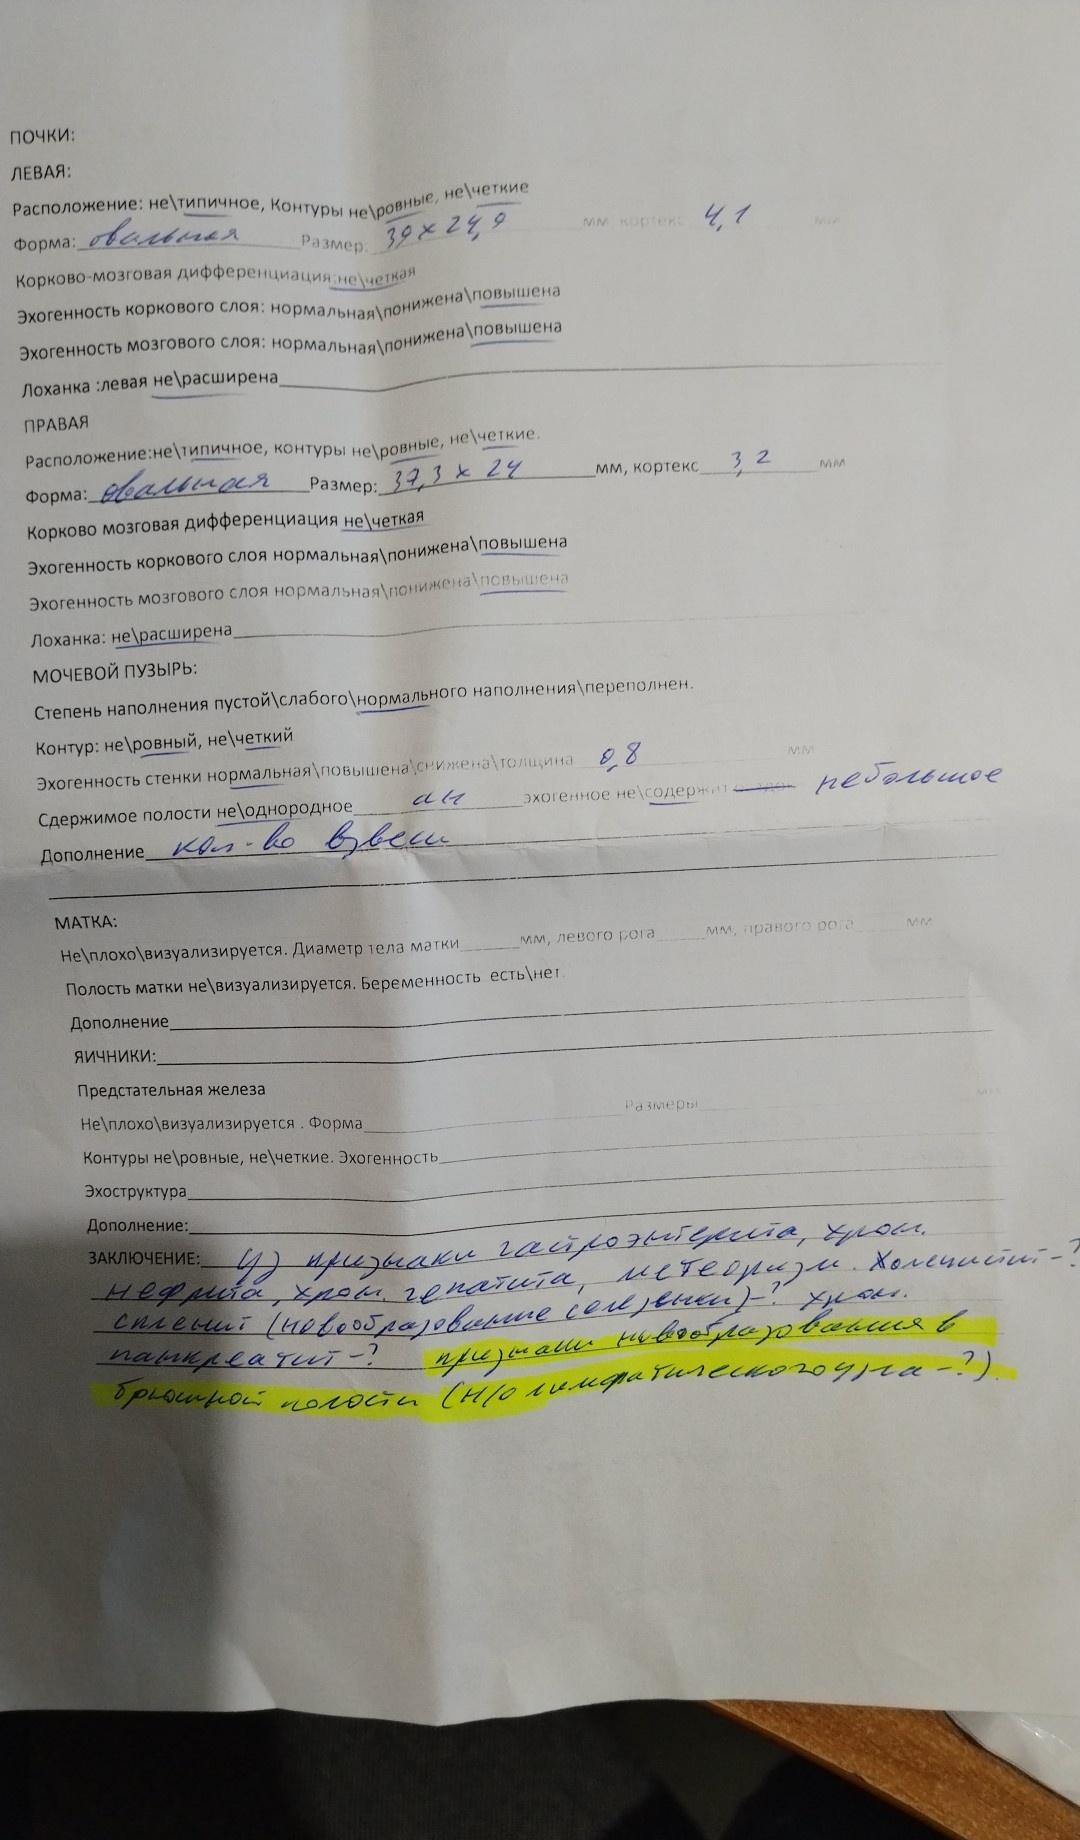 ПОЧКИ:
ЛЕВАЯ:
Расположение: не\типичное, Контуры не\ровные, не\четкие
Форма: овальная Размер: 39 х 24,9 мм кортекс 4,1 мм
Корково-мозговая дифференциация:не\четкая
Эхогенность коркового слоя: нормальная\понижена\повышена
Эхогенность мозгового слоя: нормальная\понижена\повышена
Лоханка :левая не\расширена
ПРАВАЯ
Расположение:не\типичное, контуры не\ровные, не\четкие.
Форма: овальная Размер: 37,3 х 24 мм, кортекс 3,2 мм
Корково мозговая дифференциация не\четкая
Эхогенность коркового слоя нормальная\понижена\повышена
Эхогенность мозгового слоя нормальная\понижена\повышена
Лоханка: не\расширена
МОЧЕВОЙ ПУЗЫРЬ:
Степень наполнения пустой\слабого\нормального наполнения\переполнен.
Контур: не\ровный, не\четкий
Эхогенность стенки нормальная\повышена\снижена\толщина 0,8 мм
Сдержимое полости не\однородное ан эхогенное не\содержит небольшое
Дополнение кол-во взвеси
МАТКА:
Не\плохо\визуализируется. Диаметр тела матки мм, левого рога мм, правого рога мм
Полость матки не\визуализируется. Беременность есть\нет
Дополнение
ЯИЧНИКИ:
Предстательная железа
Не\плохо\визуализируется . Форма Размеры мм
Контуры не\ровные, не\четкие. Эхогенность
Эхоструктура
Дополнение:
ЗАКЛЮЧЕНИЕ: УЗ признаки гастроэнтерита, хрон.
нефрита, хрон. гепатита, метеоризм. Холецистит-?
спленит (новообразование селезенки)-? хрон.
панкреатит-? признаки новообразования в
брюшной полости (н/о лимфатического узла-?).